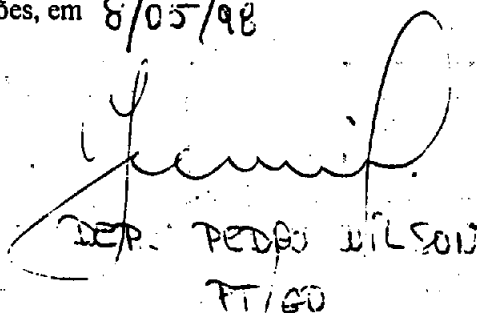 ões, em 8/05/98
DEP. PEDRO WILSON
PT/GO